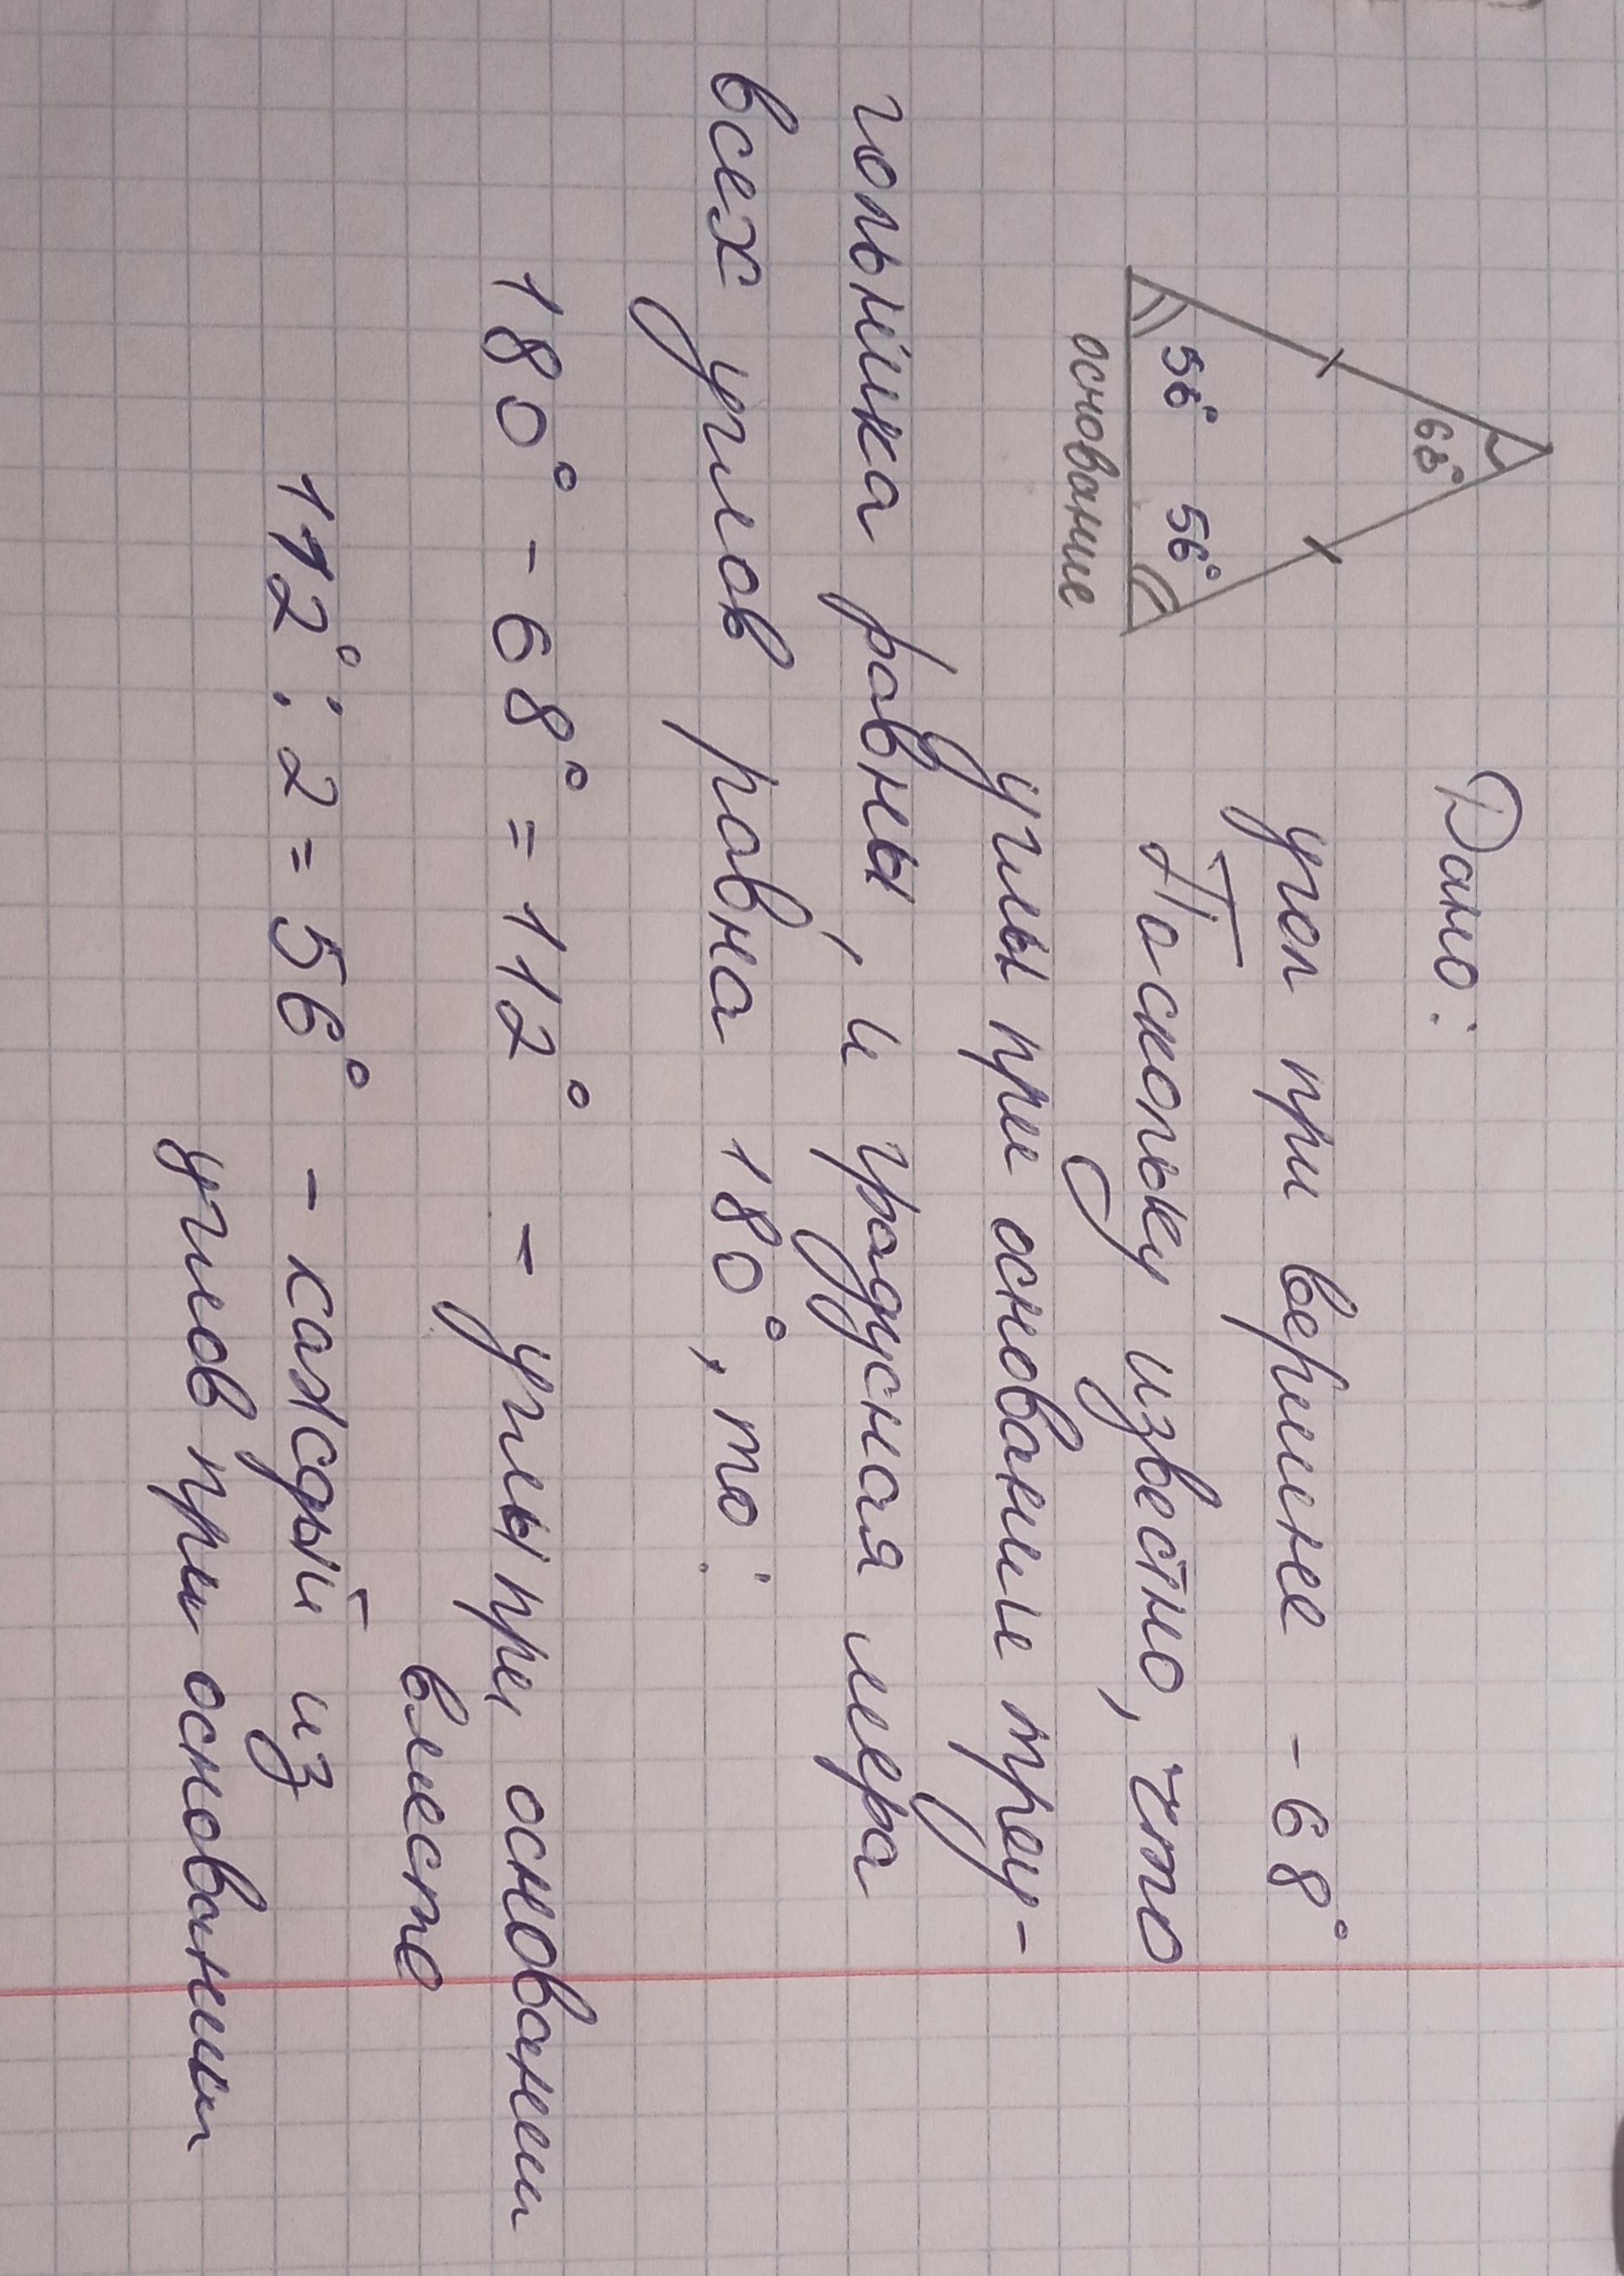 Дано:
угол при вершине - 68°
68°
56° 56°
основание
Поскольку известно, что
углы при основание треу-
гольника равны, и градусная мера
всех углов равна 180°, то:
180° - 68° = 112° - углы при основании
вместе
112° : 2 = 56° - каждый из
углов при основании